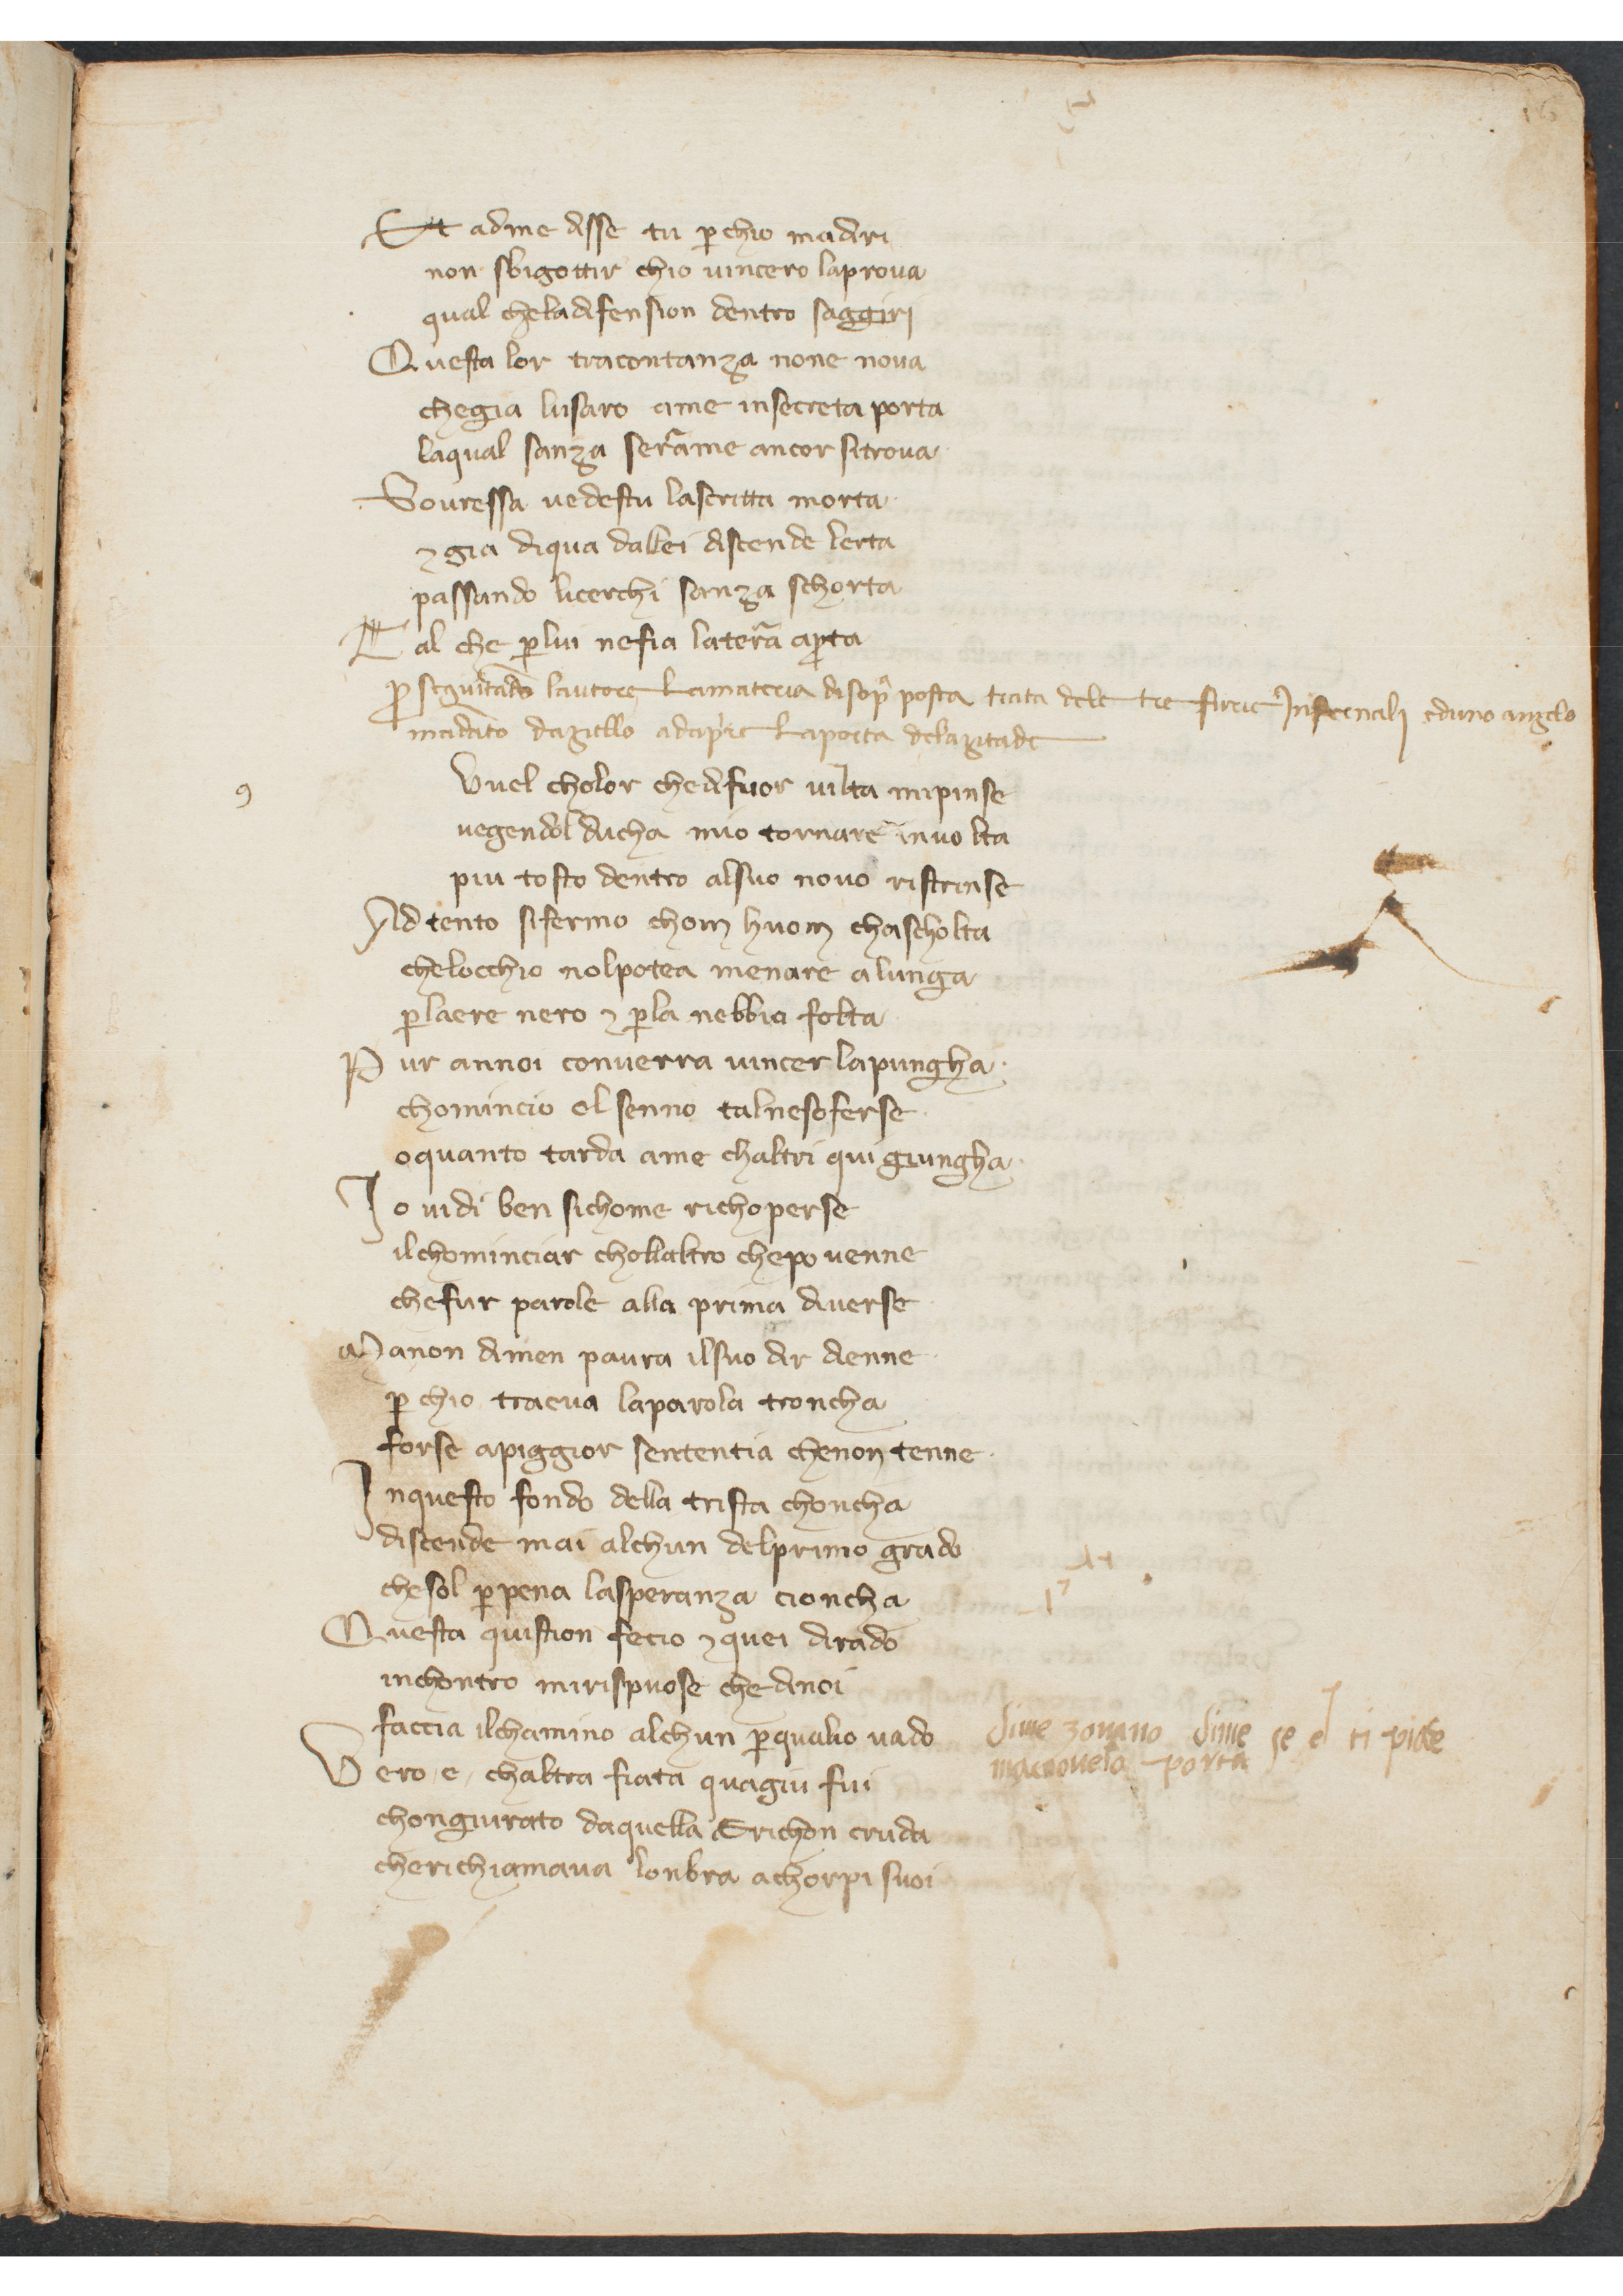 16
Et admе disse tu ꝑchio madiri
non sbigottir chio vincero laprova
qual cheladifension dentro saggirj
Questa lor tracontanza none nova
chegia lusaro ame insecreta porta
laqual sanza serãme ancor sitrova
Sovressa vedestu lascritta morta
⁊ gia diqua dallei discende lerta
passando licerchi sanza schorta
Tal che ꝑlui nefia laterã aꝑta
ꝓseguitãdo lautore Lamateria disopͣ posta trata dele tre furie Infrenalj eduno angelo
mãdato dazielo adapͥre Laporta delazitade
9
Uuel cholor chedifuor vilta mipinse
vegendol ducha mio tornare involta
piu tosto dentro alsuo novo ristrinse
Adtento sifermo chom huom chascholta
chelocchio nolpotea menare alunga
ꝑlaere nero ⁊ ꝑla nebbia folta
Pur annoi converra vincer lapungha
chomincio el senno talnesoferse
oquanto tarda ame chaltri qui giungha
Io vidi ben sichome richoperse
ilchominciar chollaltro chepo venne
chefur parole alla prima diverse
Manon dimen paura ilsuo dir dienne
ꝑchio traeva laparola troncha
forse apiggior sententia chenon tenne
Inquesto fondo della trista choncha
discende mai alchun delprimo grado
chesol ꝑpena lasperanza cioncha
Questa quistion fecio ⁊ quei dirado
inchontro mirispuose chedinoi
faccia ilchamino alchun ꝑqualio vado
Vero e chaltra fiata quagiu fui
chongiurato daquella Erichon cruda
cherichiamava lonbra achorpi suoi
dime zovano dime se el ti piase
porta